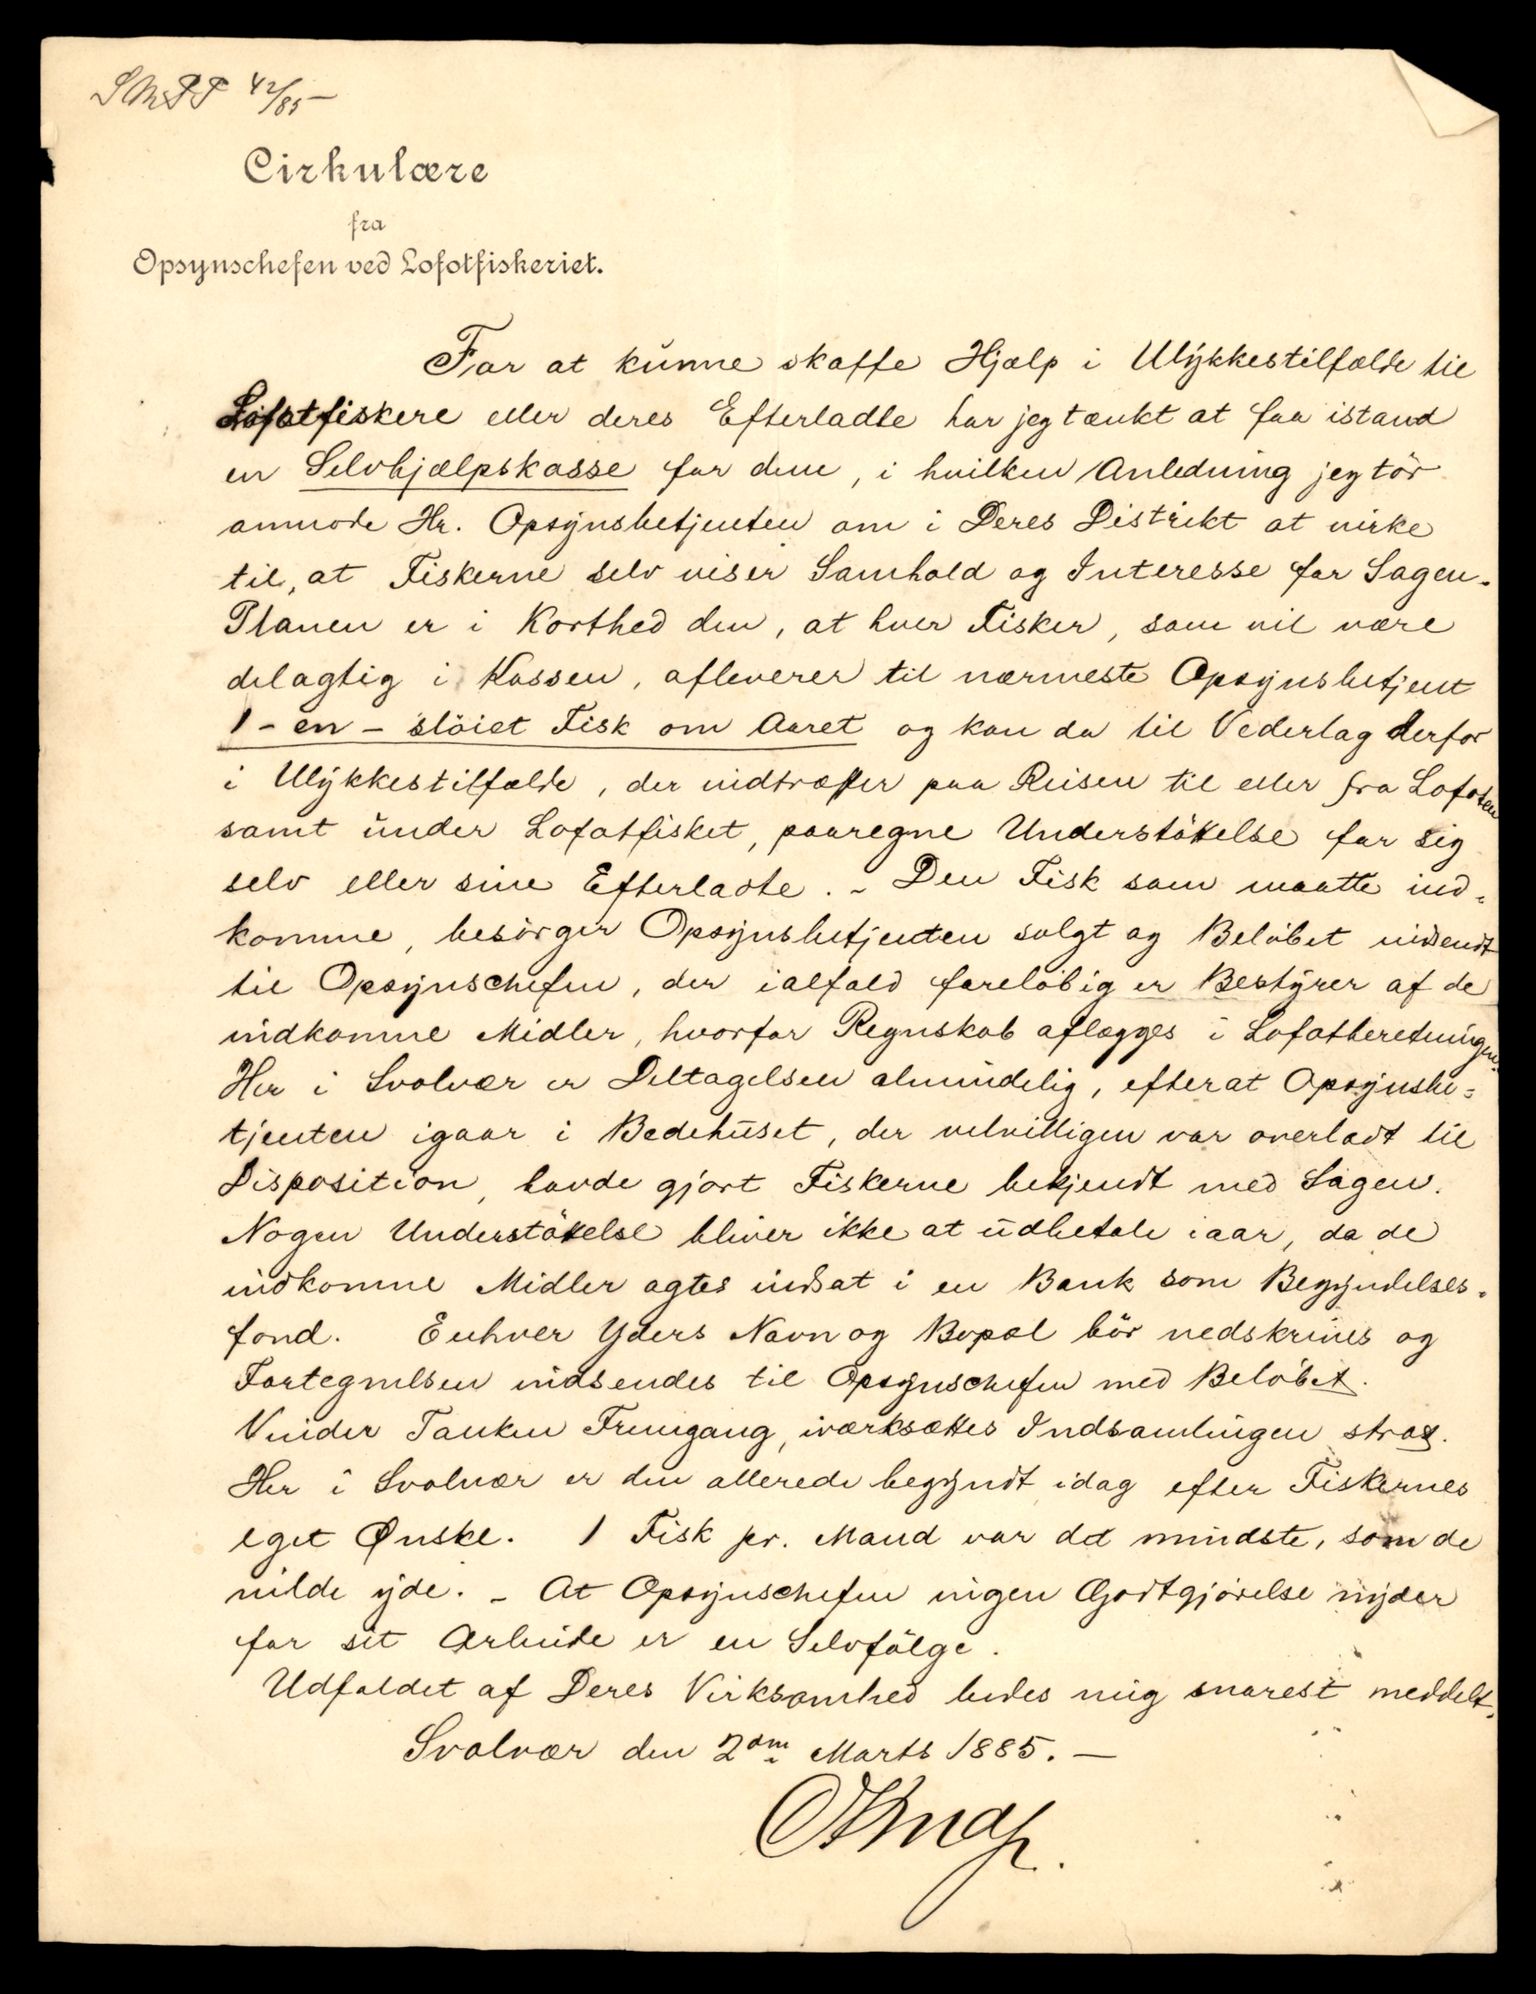 42/85 –
Cirkulære
fra
Opsynschefen ved Lofotfiskeriet.
For at kunne skaffe Hjælp i Ulykkestilfælde til
Lofotfiskere eller deres Efterladte har jeg tænkt at faa istand
en Selvhjælpskasse for dem, i hvilken Anledning jeg tör
anmode Hr. Opsynsbetjenten om i Deres Distrikt at virke
til, at Fiskerne selv viser Samhold og Interesse for Sagen.
Planen er i Korthed den, at hver Fisker, som vil være
delagtig i Kassen, afleverer til nærmeste Opsynsbetjent
1 – en – slöiet Fisk om Aaret og kan da til Vederlag derfor
i Ulykkestilfælde, der indtræffer paa Reisen til eller fra Lofoten
samt under Lofotfisket, paaregne Understöttelse for sig
selv eller sine Efterladte. – Den Fisk som maatte ind-
komme, besörger Opsynsbetjenten solgt og Belöbet indsendt
til Opsynschefen, der ialfald foreløbig er Bestyrer af de
indkomne Midler, hvorfor Regnskab aflægges i Lofotberetningen.
Her i Svolvær er Deltagelsen almindelig, efterat Opsynsbe-
tjenten igaar i Bedehuset, der velvilligen var overladt til
Disposition, havde gjort Fiskerne bekjendt med Sagen.
Nogen Understöttelse bliver ikke at udbetale iaar, da de
indkomne Midler agtes indsat i en Bank som Begyndelses-
fond. Enhver Yders Navn og Bopæl bör nedskrives og
Fortegnelsen indsendes til Opsynschefen med Belöbet.
Vinder Tanken Fremgang, iværksættes Indsamlingen strax.
Her i Svolvær er den allerede begyndt idag efter Fiskernes
eget Ønske. 1 Fisk pr. Mand var det mindste, som de
vilde yde. – At Opsynschefen ingen Godtgjörelse nyder
for sit Arbeide er en Selvfölge.
Udfaldet af Deres Virksomhed bedes mig snarest meddelt.
Svolvær den 2den Marts 1885. –